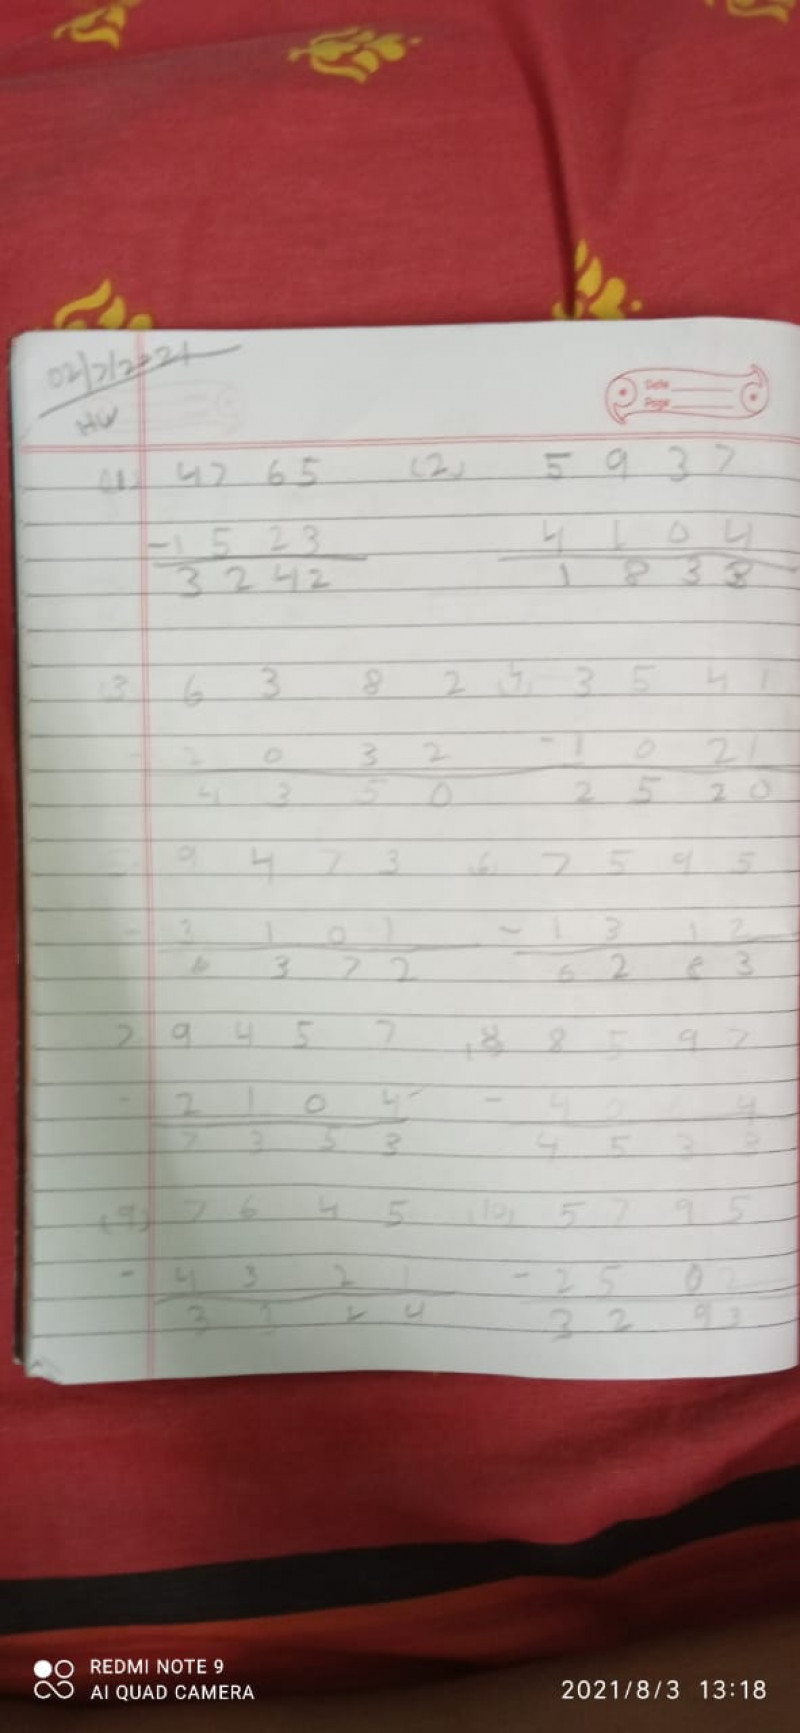 02/7/2021
HW
Date
Page
(1) 4765 (2) 5937
-1523 4104
3242 1833
(3 6382 (4) 3541
- 2032 -1021
4350 2520
5. 9473 (6) 7595
- 3101 -1312
6372 6283
7 9457 (8 8597
- 2104 -
7353 4533
(9) 7645 (10) 5795
- 4321 -2502
3324 3293
REDMI NOTE 9
AI QUAD CAMERA 2021/8/3 13:18